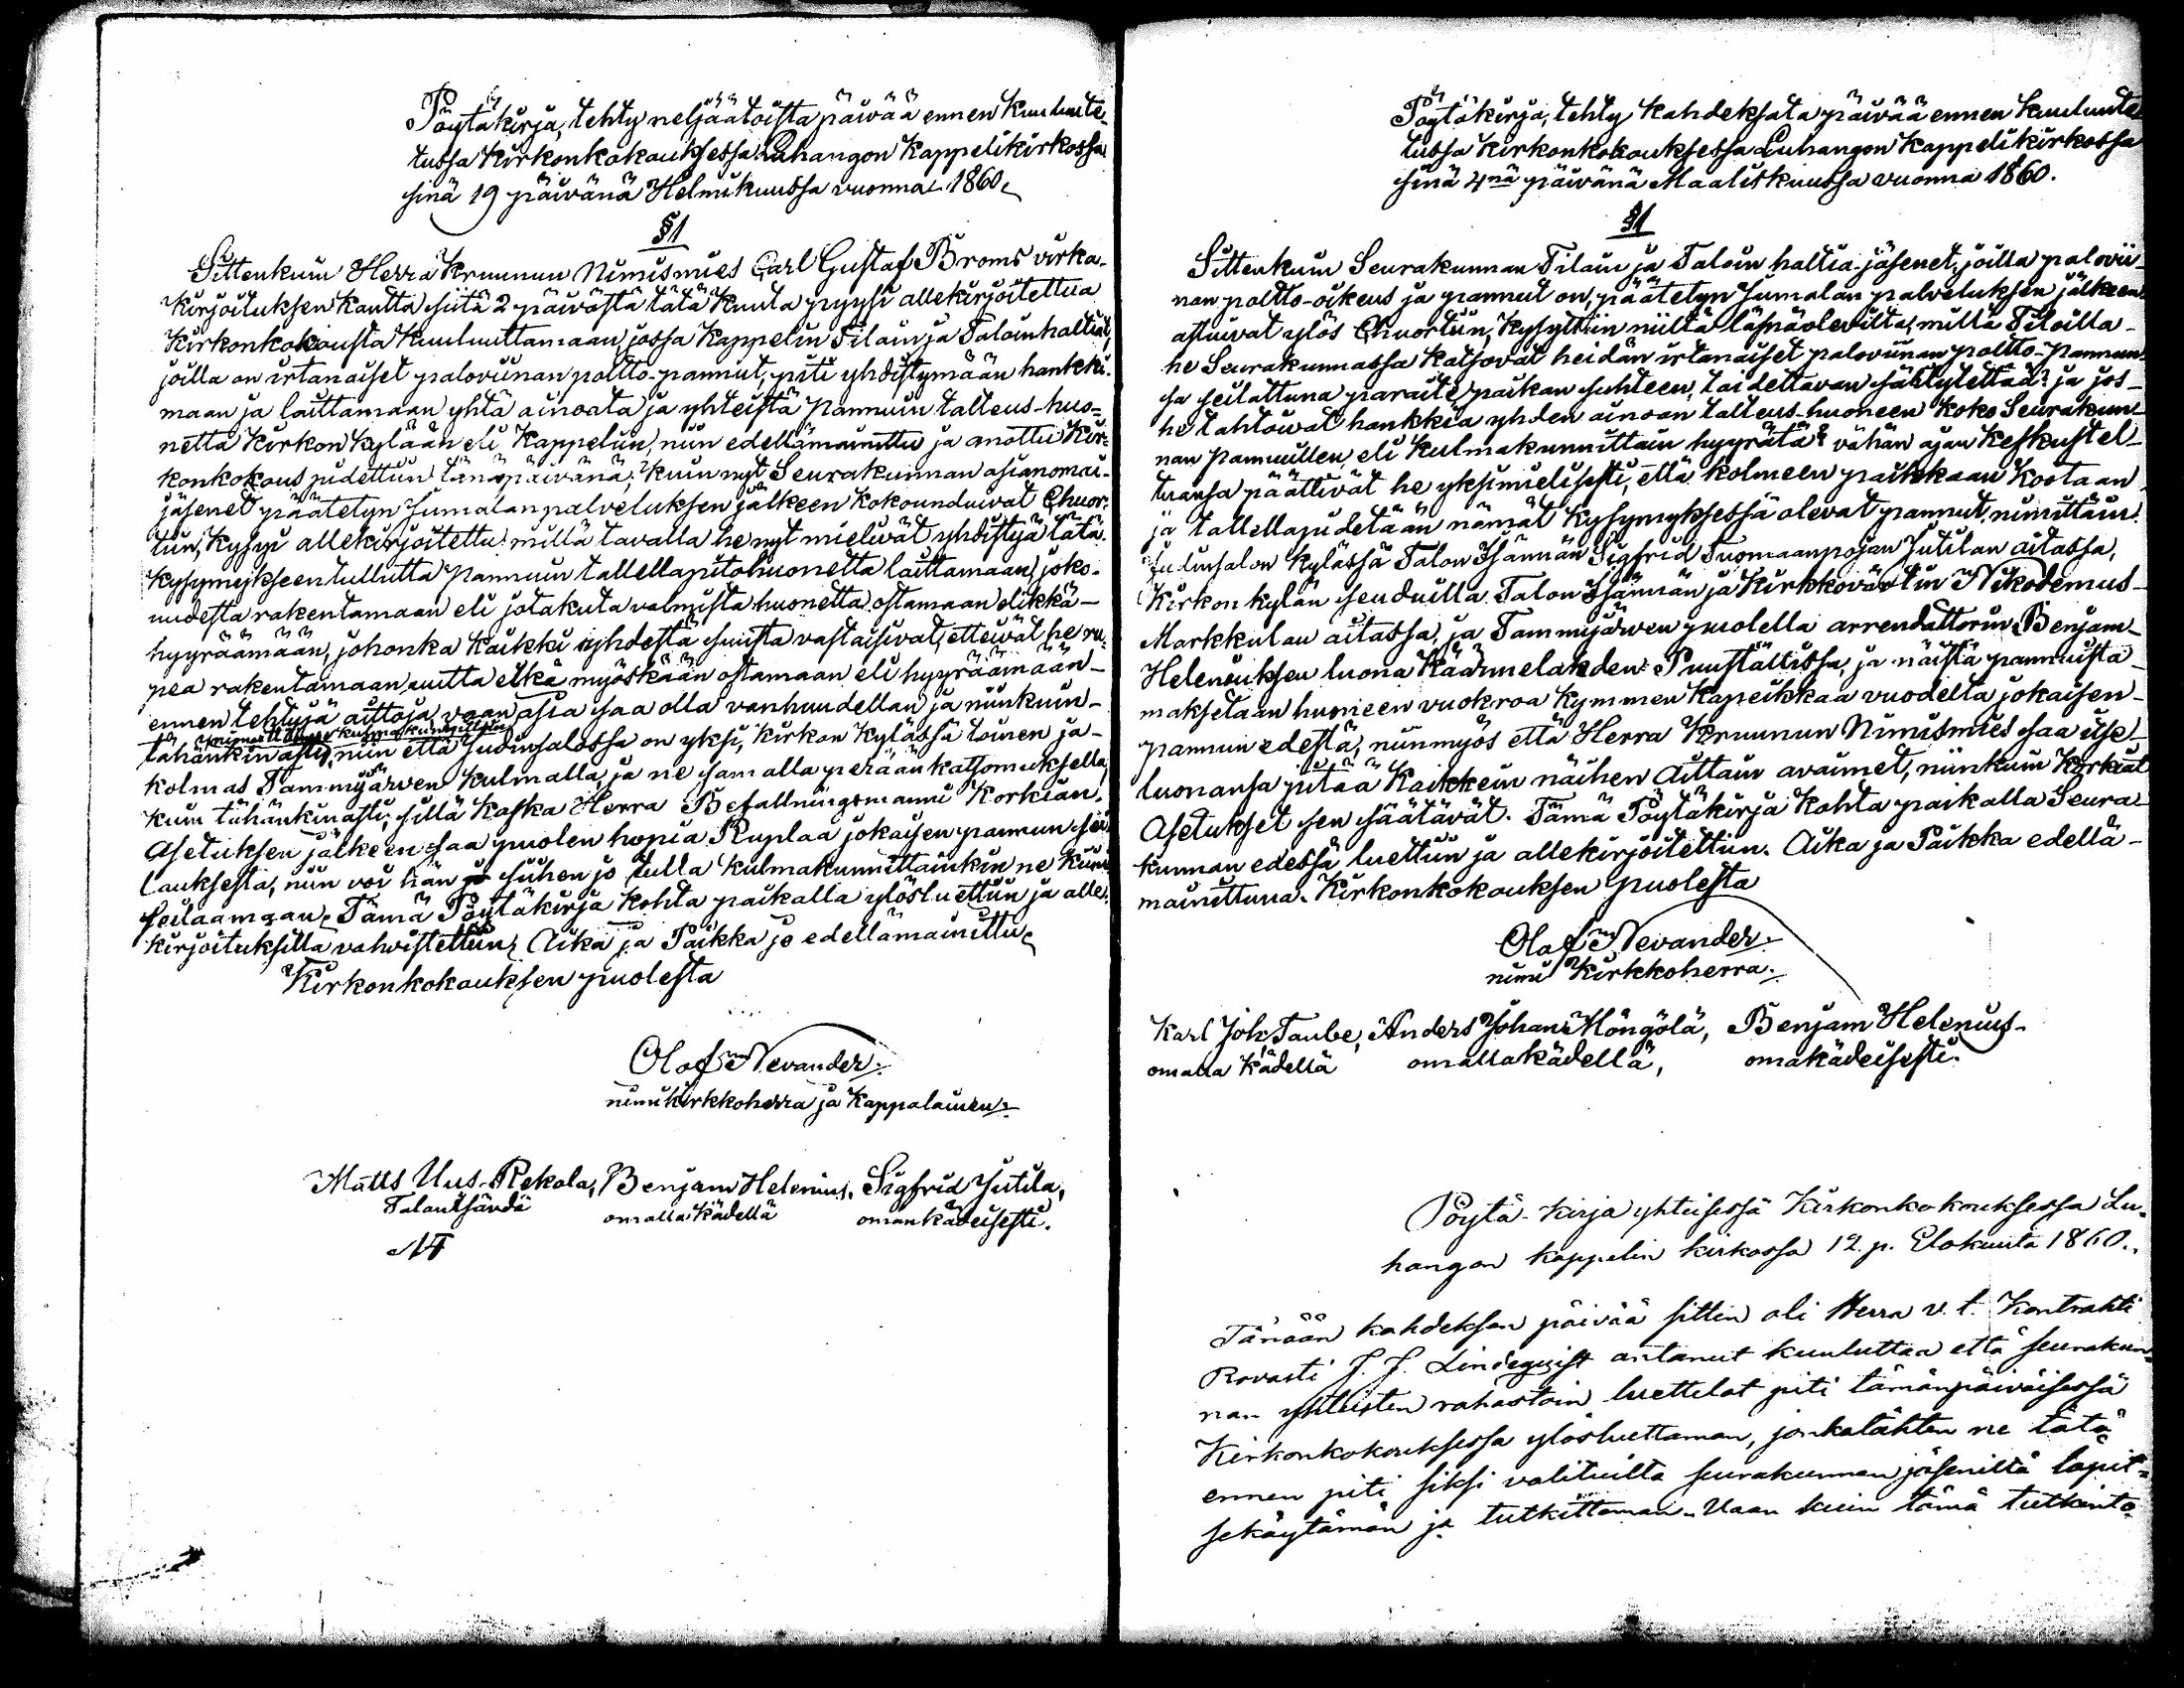 Pöytäkirja, tehty neljäätoista päivää ennen kuulute-
tussa Kirkonkokouksessa Luhangon Kappelikirkossa
sinä 19 päivänä Helmikuussa vuonna 1860.
§1
Sittenkuin Herra Kruunun Nimismies Carl Gustaf Broms virka-
kirjoituksen kautta siitä 2 päivästä tätä kuuta pyysi allekirjoitettua
Kirkonkokousta kuuluttamaan, jossa Kappelin Tilain ja Taloinhaltiat,
joilla on irtanaiset paloviinan poltto-pannut, piti yhdistymään hankki-
maan ja laittamaan yhtä ainoata ja yhteistä Pannuin talteus-huo-
netta Kirkon Kylään eli Kappeliin, niin edellämainittu ja anottu Kir-
konkokous pidettiin tänäpäivänä; Kuin nyt Seurakunnan asianomai-
jäsenet päätetyn Jumalanpalveluksen jälkeen kokounduivat Chuor-
iin, kysyi allekirjoitettu: millä tavalla he nyt mieliwät yhdistyä tätä
kysymykseen tullutta Pannuin tallellapitohuonetta laittamaan, joko-
uudesta rakentamaan eli jotakuta valmista huonetta ostamaan elikkä-
hyyräämään, johonka kaikki yhdestä suusta vastaisivat, etteiwät he ru-
pea rakentamaan uutta eikä myöskään ostamaan eli hyyräämään-
ennen tehtyjä aittoja, vaan asia saa olla vanhuudellan ja niinkuin-
tähänkin asti, niin että Judinsalossa on yksi, Kirkon Kylässä toinen ja-
kolmas Tammijärwen Kulmalla, ja ne samalla perään katsomuksella,
kuin tähänkinasti; sillä koska Herra Befallningsmanni Korkian-
Asetuksen jälkeen saa puolen hopia Ruplaa jokaisen pannun sei-
lauksesta, niin voi hän siihen jo tulla Kulmakunnittainkin ne kuin
seilaamaan. Tämä Pöytäkirja kohta paikalla ylösluettiin ja alle-
kirjoituksilla vahvistettiin; Aika ja Paikka jo edellämainittu.
Kirkonkokouksen puolesta
Olof Nevander.
nimikirkkoherra ja Kappalainen.
Matts Uus-Rekola, Benjam Helenius, Sigfrid Jutila,
Talonisändä omallakädellä omankädeisesti.
Pöytäkirja, tehty kahdeksata päivää ennen kuulute-
tussa Kirkonkokouksessa Luhangon Kappelikirkossa
sinä 4nä päivänä Maaliskuussa vuonna 1860.
§1
Sittenkuin Seurakunnan Tilain ja Taloin haltia-jäsenet, joilla palovii-
nan poltto-oikeus ja pannut on, päätetyn Jumalan palveluksen jälkeen
astuivat ylös Chuoriin, kysyttiin niiltä läsnäolevilta, millä Tiloilla-
he Seurakunnassa katsovat heidän irtanaiset paloviinan poltto-Pannun-
sa seilattuna paraite paikan suhteen, taidettavan säilytettää? ja jos-
he tahtoiwat hankkia yhden ainoan talteus-huoneen koko Seurakun-
nan Pannuillen, eli kulmakunnittain hyyrätä? vähän ajan keskustel-
tuansa päättivät he yksimielisesti, että kolmeen paikkaan kootaan
ja tallellapidetään nämät kysymyksessä olevat pannut, nimittäin
Judinsalon Kylässä Talon Isännän Sigfrid Tuomaanpojan Jutilan aitassa,
Kirkon kylän seuduilla Talon Isännän ja Kirkkovärtin Nikodemus-
Markkulan aitassa, ja Tammijärwen puolella arrendattorin Benjam-
Heleniuksen luona Käärmelahden Puuställissa, ja näistä pannuista
maksetaan huoneen vuokroa Kymmen Kapeikkaa vuodelta jokaisen-
pannun edestä, niinmyös että Herra Kruunun Nimismies saa itse-
luonansa pitää kaikkein näihen Aittain avaimet, niinkuin Korkiat
Asetukset sen säätävät. Tämä Pöytäkirja kohta paikalla Seura-
kunnan edessä luettiin ja allekirjoitettiin. Aika ja Paikka edellä-
mainittuna. Kirkonkokouksen puolesta
Olof Nevander.
nimi Kirkkoherra.
Karl Joh. Taube, Anders Johan Möngölä, Benjam Helenius
omalla kädellä omallakädellä, omakädeisesti.
Pöytä-kirja yhteisessä Kirkonkokouksessa Lu-
hangon kappelin kirkossa 12. p. Elokuuta 1860.
Tänään kahdeksan päivää sitten oli Herra v. t. Kontrahti
Rovasti J. J. Lindeqvist antanut kuuluttaa että seurakun-
nan yhteisten rahastoin luettelot piti tämänpäiväisessä
Kirkonkokouksessa ylösluettaman, jonkatähten ne tätä
ennen piti siksi valituilta seurakunnan jäseniltä läpit-
sekäytämän ja tutkittaman. Vaan kuin tämä tutkinto-